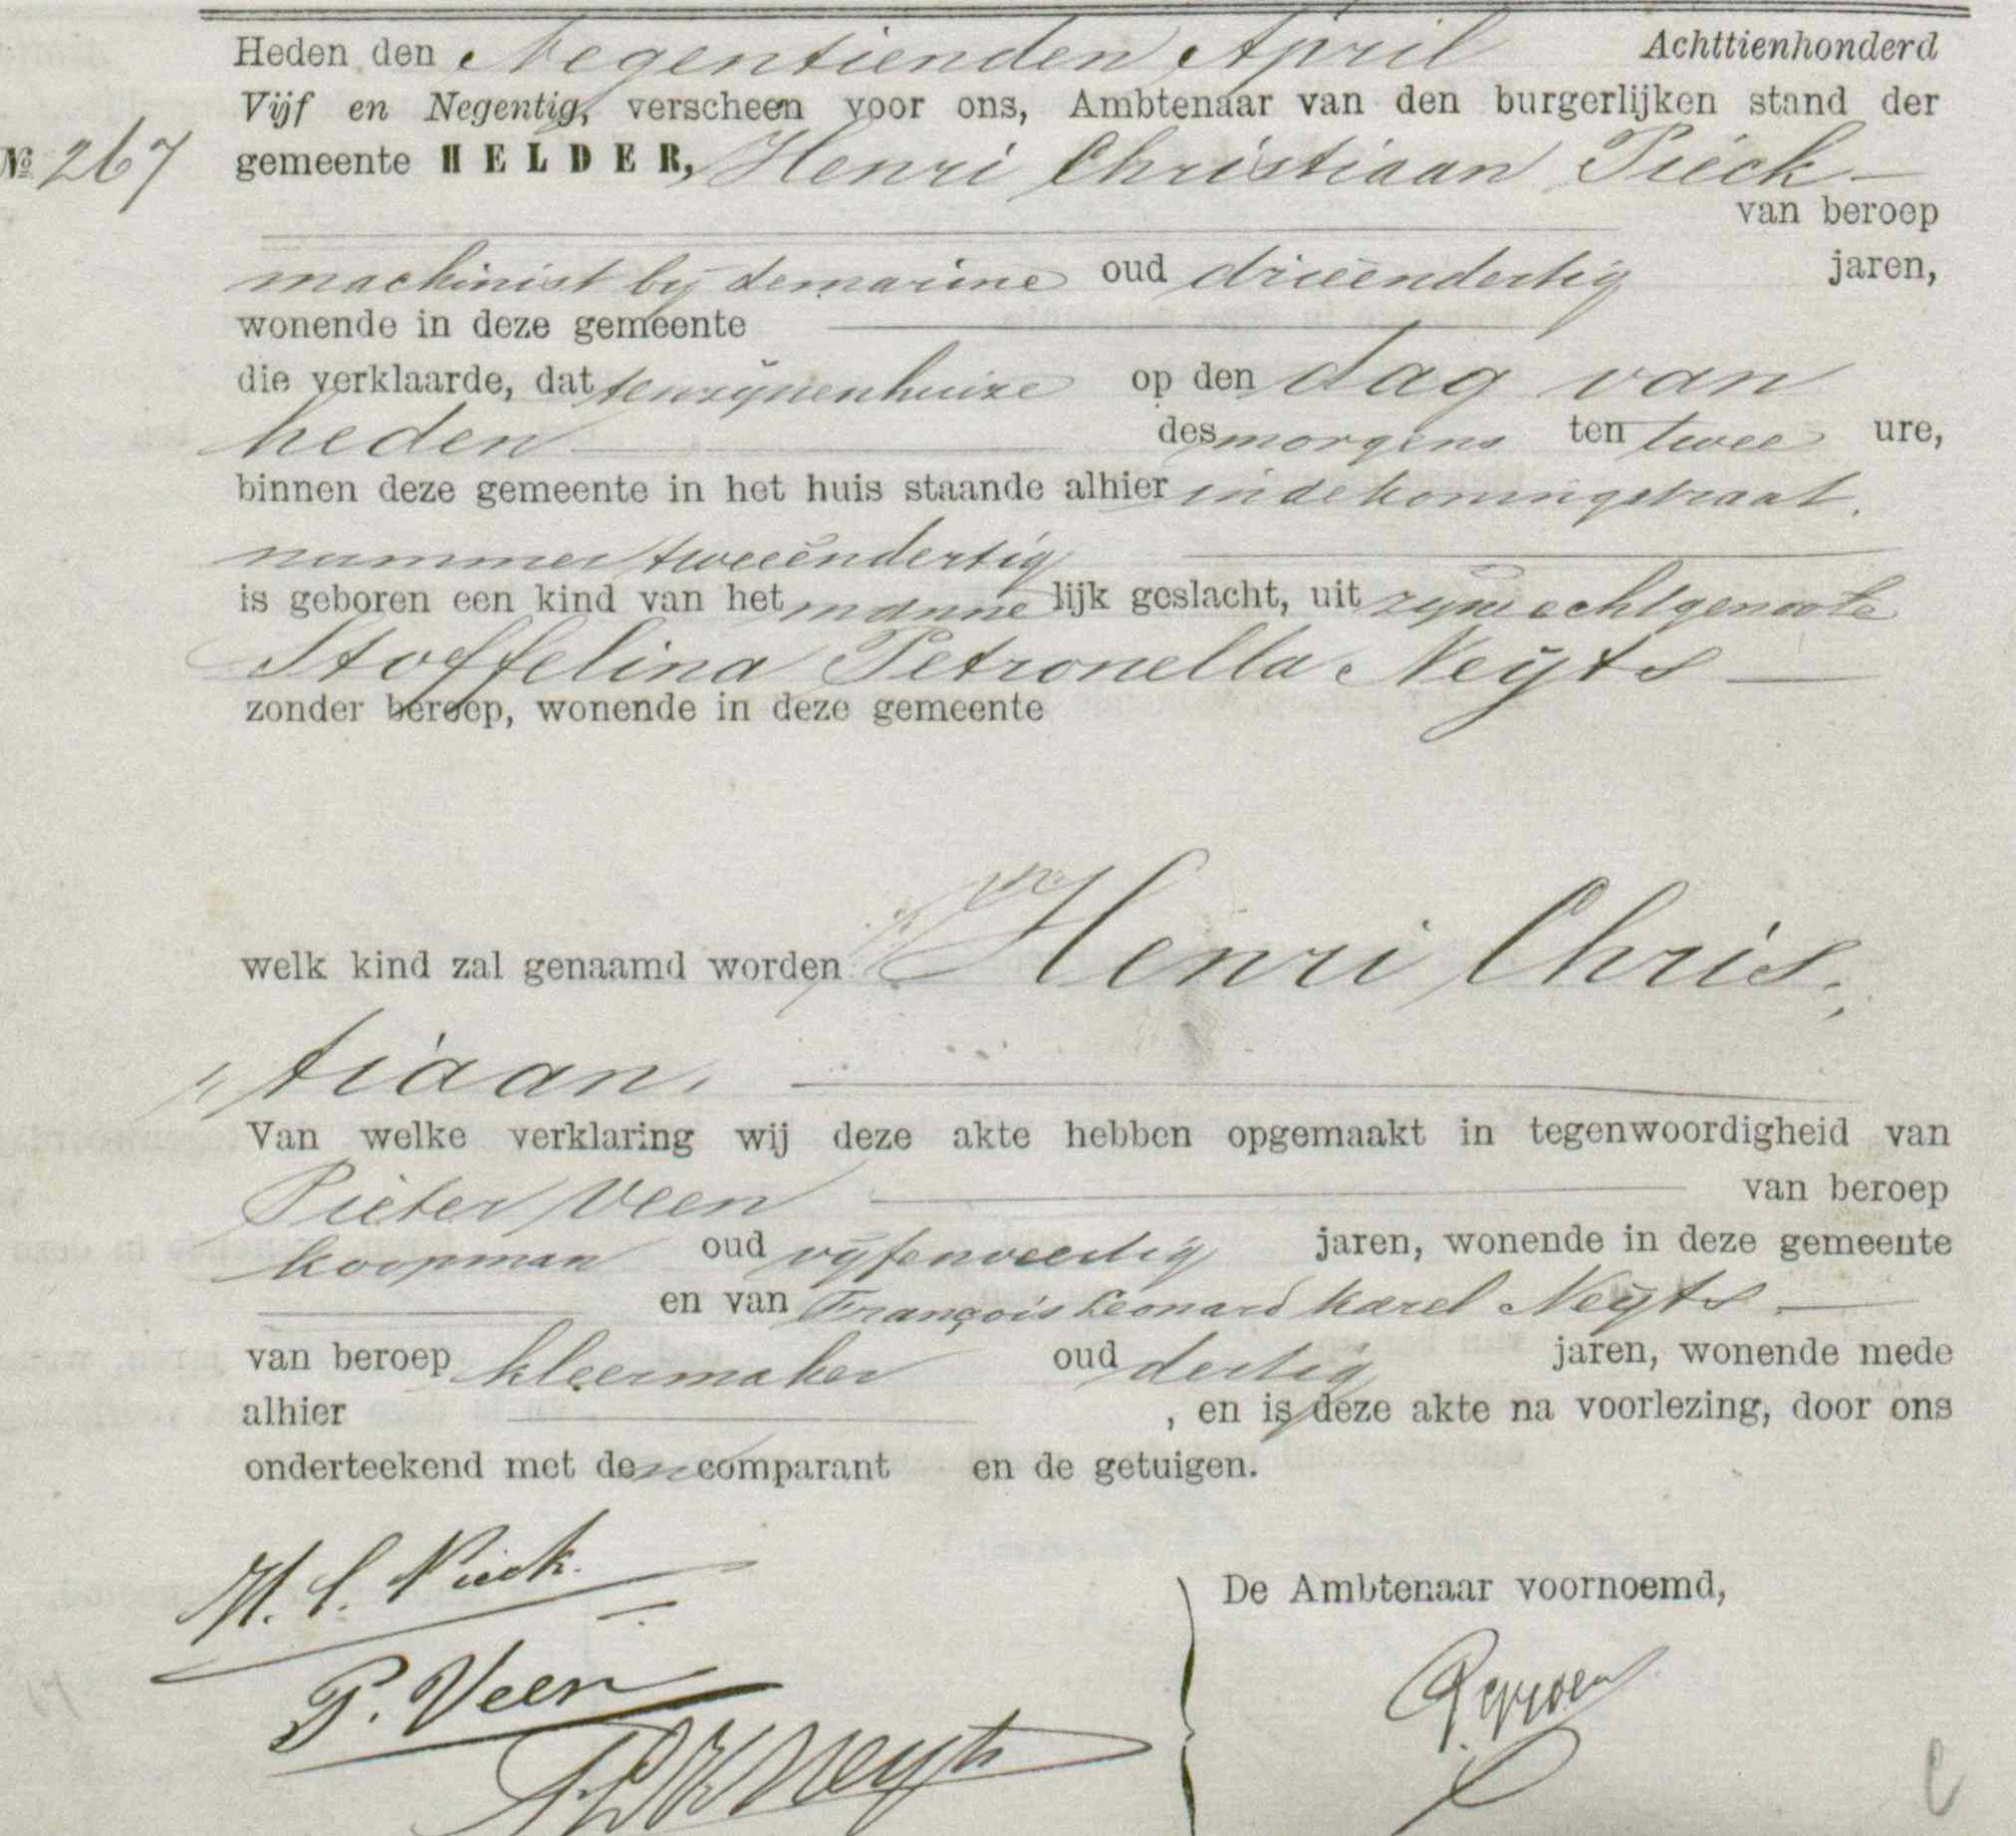 Heden den Negentienden April Achttienhonderd
Vijf en Negentig, verscheen voor ons, Ambtenaar van den burgerlijken stand der
№ 267 gemeente HELDER, Henri Christiaan Pieck
van beroep
machinist bij de marine oud drieëndertig jaren,
wonende in deze gemeente
die verklaarde, dat tenzijnenhuize op den dag van
heden des morgens ten twee ure,
binnen deze gemeente in het huis staande alhier in de koningstraat,
nummer tweeëndertig
is geboren een kind van het mannelijk geslacht, uit zijne echtgenoote
Stoffelina Petronella Neijts
zonder beroep, wonende in deze gemeente
welk kind zal genaamd worden Henri Chris,,
,,tiaan.
Van welke verklaring wij deze akte hebben opgemaakt in tegenwoordigheid van
Pieter Veen van beroep
koopman oud vijfenveertig jaren, wonende in deze gemeente
en van François Leonard Karel Neijts
van beroep kleermaker oud dertig jaren, wonende mede
alhier , en is deze akte na voorlezing, door ons
onderteekend met den comparant en de getuigen.
H. C. Pieck.
De Ambtenaar voornoemd,
P. Veen
F. L. K. Neyts